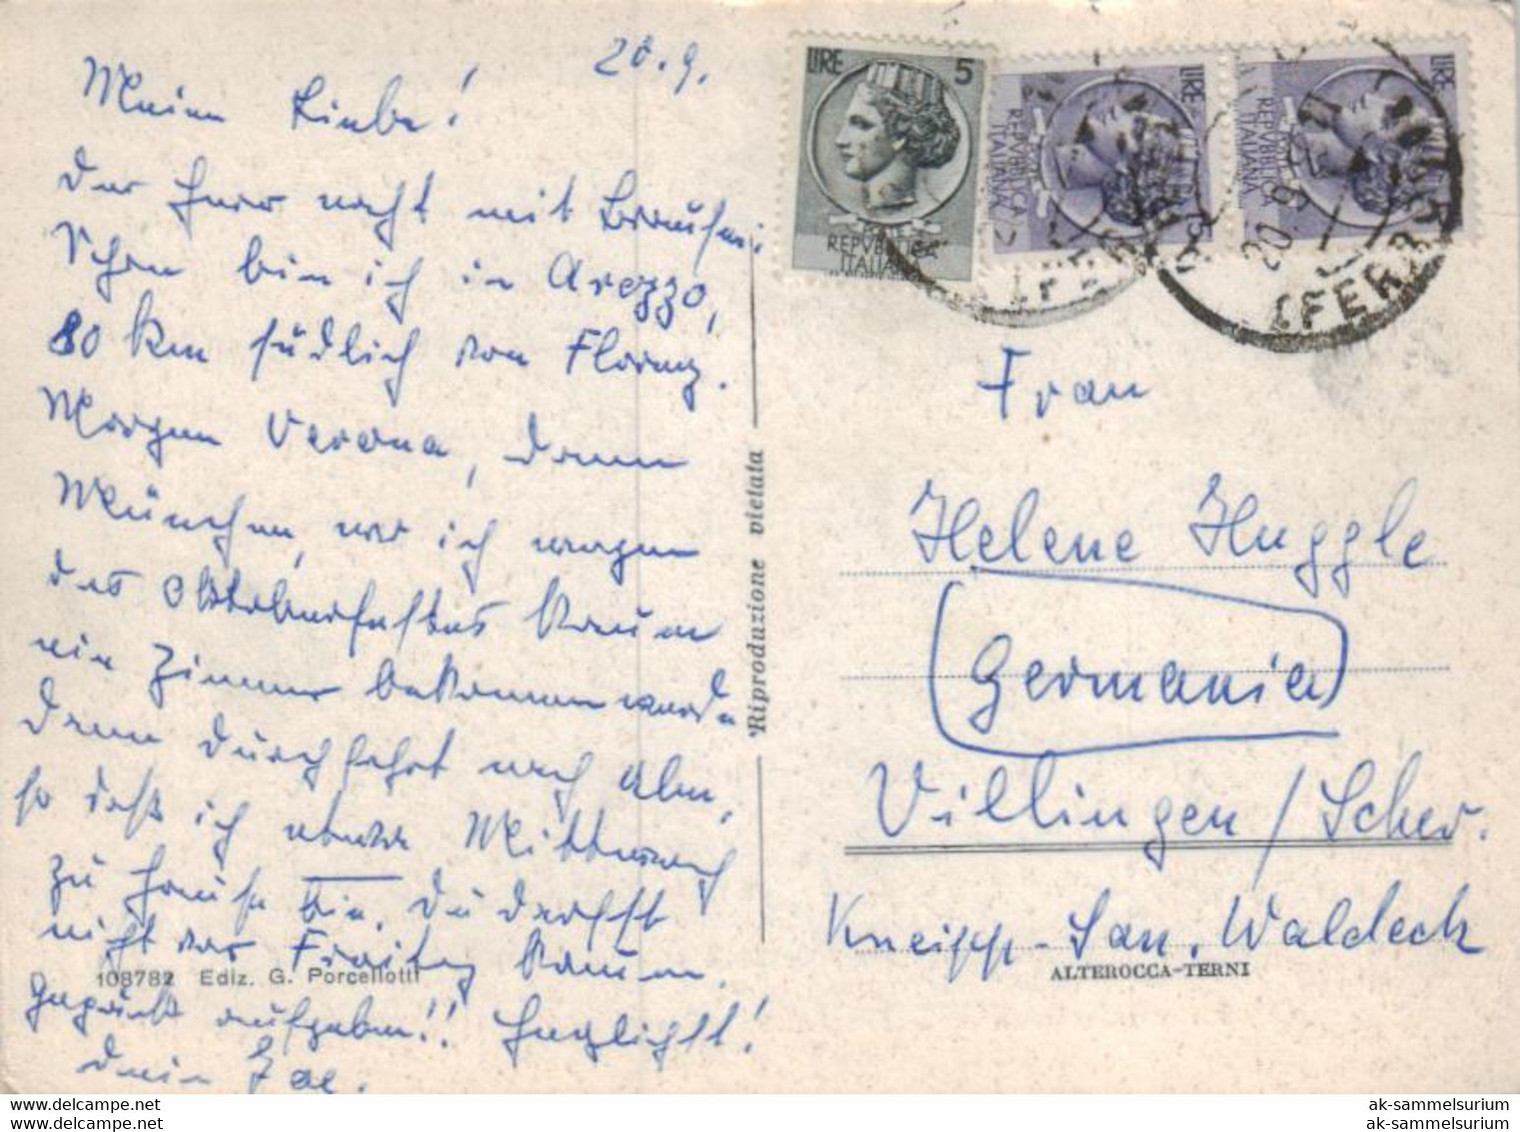 20.9.
Meine Liebe!
Der Herr naht mit Brausen:
Schon bin ich in Arezzo,
80 km südlich von Florenz.
Morgen Verona, dann
München, wo ich wegen
des Oktoberfestes kaum
ein Zimmer bekommen werde
dann Durchfahrt nach Ulm,
so daß ich etwa Mittwoch
zu Hause bin. Du darfst
nicht vor Freitag kaum.
Gepäck aufgeben!! Herzlichst!
Dein
LIRE 5
REPVBBLICA
ITALIANA
LIRE
REPVBBLICA
ITALIANA
LIRE
REPVBBLICA
ITALIANA
20.9.5
(FERR
Frau
Helene Huggle
Germania
Villingen / Schw.
Kneipp-San. Waldeck
Riproduzione vietata
108782 Ediz. G. Porcellotti
ALTEROCCA-TERNI
low resolution scan
108782
ak-sammelsurium
ak-sammelsurium